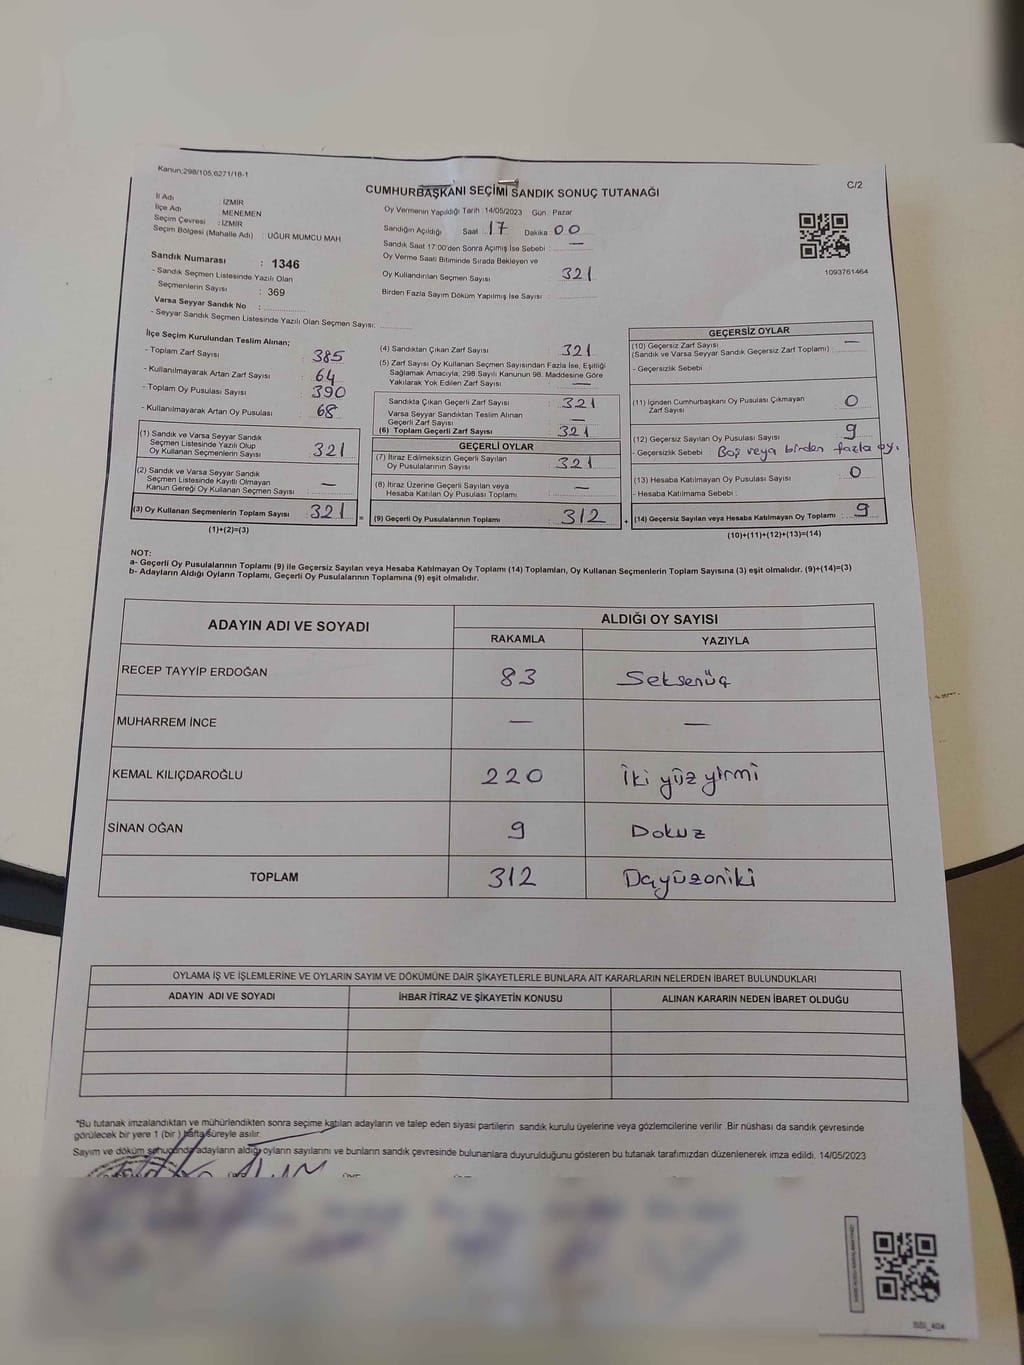 Kanun;298/105,6271/18-1
CUMHURBAŞKANI SEÇİMİ SANDIK SONUÇ TUTANAĞI
C/2
İl Adı : İZMİR
İlçe Adı : MENEMEN
Seçim Çevresi : İZMİR
Seçim Bölgesi (Mahalle Adı) : UĞUR MUMCU MAH
Sandık Numarası : 1346
- Sandık Seçmen Listesinde Yazılı Olan
Seçmenlerin Sayısı : 369
Varsa Seyyar Sandık No :
- Seyyar Sandık Seçmen Listesinde Yazılı Olan Seçmen Sayısı:
Oy Vermenin Yapıldığı Tarih :14/05/2023 Gün : Pazar
Sandığın Açıldığı Saat : 17 Dakika 00
Sandık Saat 17:00'den Sonra Açımış İse Sebebi : —
Oy Verme Saati Bitiminde Sırada Bekleyen ve
Oy Kullandırılan Seçmen Sayısı 321
Birden Fazla Sayım Döküm Yapılmış İse Sayısı :
1093761464
İlçe Seçim Kurulundan Teslim Alınan;
- Toplam Zarf Sayısı : 385
- Kullanılmayarak Artan Zarf Sayısı : 64
- Toplam Oy Pusulası Sayısı : 390
- Kullanılmayarak Artan Oy Pusulası : 68
(1) Sandık ve Varsa Seyyar Sandık
Seçmen Listesinde Yazılı Olup
Oy Kullanan Seçmenlerin Sayısı : 321
(2) Sandık ve Varsa Seyyar Sandık
Seçmen Listesinde Kayıtlı Olmayan
Kanun Gereği Oy Kullanan Seçmen Sayısı : —
(3) Oy Kullanan Seçmenlerin Toplam Sayısı : 321 =
(1)+(2)=(3)
(4) Sandıktan Çıkan Zarf Sayısı : 321
(5) Zarf Sayısı Oy Kullanan Seçmen Sayısından Fazla İse, Eşitliği
Sağlamak Amacıyla; 298 Sayılı Kanunun 98. Maddesine Göre
Yakılarak Yok Edilen Zarf Sayısı : —
Sandıkta Çıkan Geçerli Zarf Sayısı : 321
Varsa Seyyar Sandıktan Teslim Alınan
Geçerli Zarf Sayısı : —
(6) Toplam Geçerli Zarf Sayısı : 321
GEÇERLİ OYLAR
(7) İtiraz Edilmeksizin Geçerli Sayılan
Oy Pusulalarının Sayısı : 321
(8) İtiraz Üzerine Geçerli Sayılan veya
Hesaba Katılan Oy Pusulası Toplamı : —
(9) Geçerli Oy Pusulalarının Toplamı : 312 +
GEÇERSİZ OYLAR
(10) Geçersiz Zarf Sayısı
(Sandık ve Varsa Seyyar Sandık Geçersiz Zarf Toplamı) : —
- Geçersizlik Sebebi :
(11) İçinden Cumhurbaşkanı Oy Pusulası Çıkmayan
Zarf Sayısı : 0
(12) Geçersiz Sayılan Oy Pusulası Sayısı : 9
- Geçersizlik Sebebi : Boş veya birden fazla oy.
(13) Hesaba Katılmayan Oy Pusulası Sayısı : 0
- Hesaba Katılmama Sebebi :
(14) Geçersiz Sayılan veya Hesaba Katılmayan Oy Toplamı : 9
(10)+(11)+(12)+(13)=(14)
NOT:
a- Geçerli Oy Pusulasının Toplamı (9) ile Geçersiz Sayılan veya Hesaba Katılmayan Oy Toplamı (14) Toplamları, Oy Kullanan Seçmenlerin Toplam Sayısına (3) eşit olmalıdır. (9)+(14)=(3)
b- Adayların Aldığı Oyların Toplamı, Geçerli Oy Pusulalarının Toplamına (9) eşit olmalıdır.
ADAYIN ADI VE SOYADI
ALDIĞI OY SAYISI
RAKAMLA YAZIYLA
RECEP TAYYİP ERDOĞAN 83 Seksenüç
MUHARREM İNCE — —
KEMAL KILIÇDAROĞLU 220 İki yüz yirmi
SİNAN OĞAN 9 Dokuz
TOPLAM 312 Dayüzoniki
OYLAMA İŞ VE İŞLEMLERİNE VE OYLARIN SAYIM VE DÖKÜMÜNE DAİR ŞİKAYETLERLE BUNLARA AİT KARARLARIN NELERDEN İBARET BULUNDUKLARI
ADAYIN ADI VE SOYADI İHBAR İTİRAZ VE ŞİKAYETİN KONUSU ALINAN KARARIN NEDEN İBARET OLDUĞU
*Bu tutanak imzalandıktan ve mühürlendikten sonra seçime katılan adayların ve talep eden siyasi partilerin sandık kurulu üyelerine veya gözlemcilerine verilir .Bir nüshası da sandık çevresinde
görülecek bir yere 1 (bir ) hafta süreyle asılır.
Sayım ve döküm sonucunda adayların aldığı oyların sayılarını ve bunların sandık çevresinde bulunanlara duyurulduğunu gösteren bu tutanak tarafımızdan düzenlenerek imza edildi. 14/05/2023